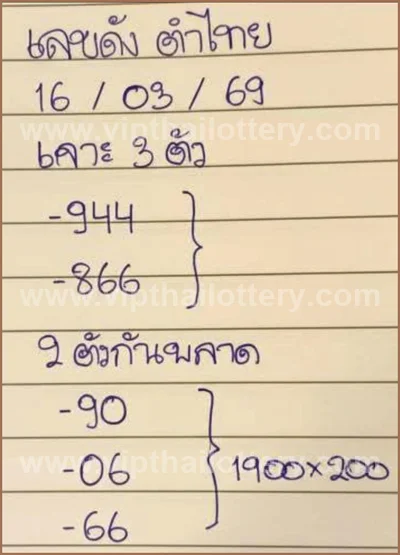 เลขดัง ตำไทย
16 / 03 / 69
www.vipthailottery.com
เจาะ 3 ตัว
-944
-866
www.vipthailottery.com
2 ตัวกันพลาด
-90
-06 1900×200
www.vipthailottery.com
-66